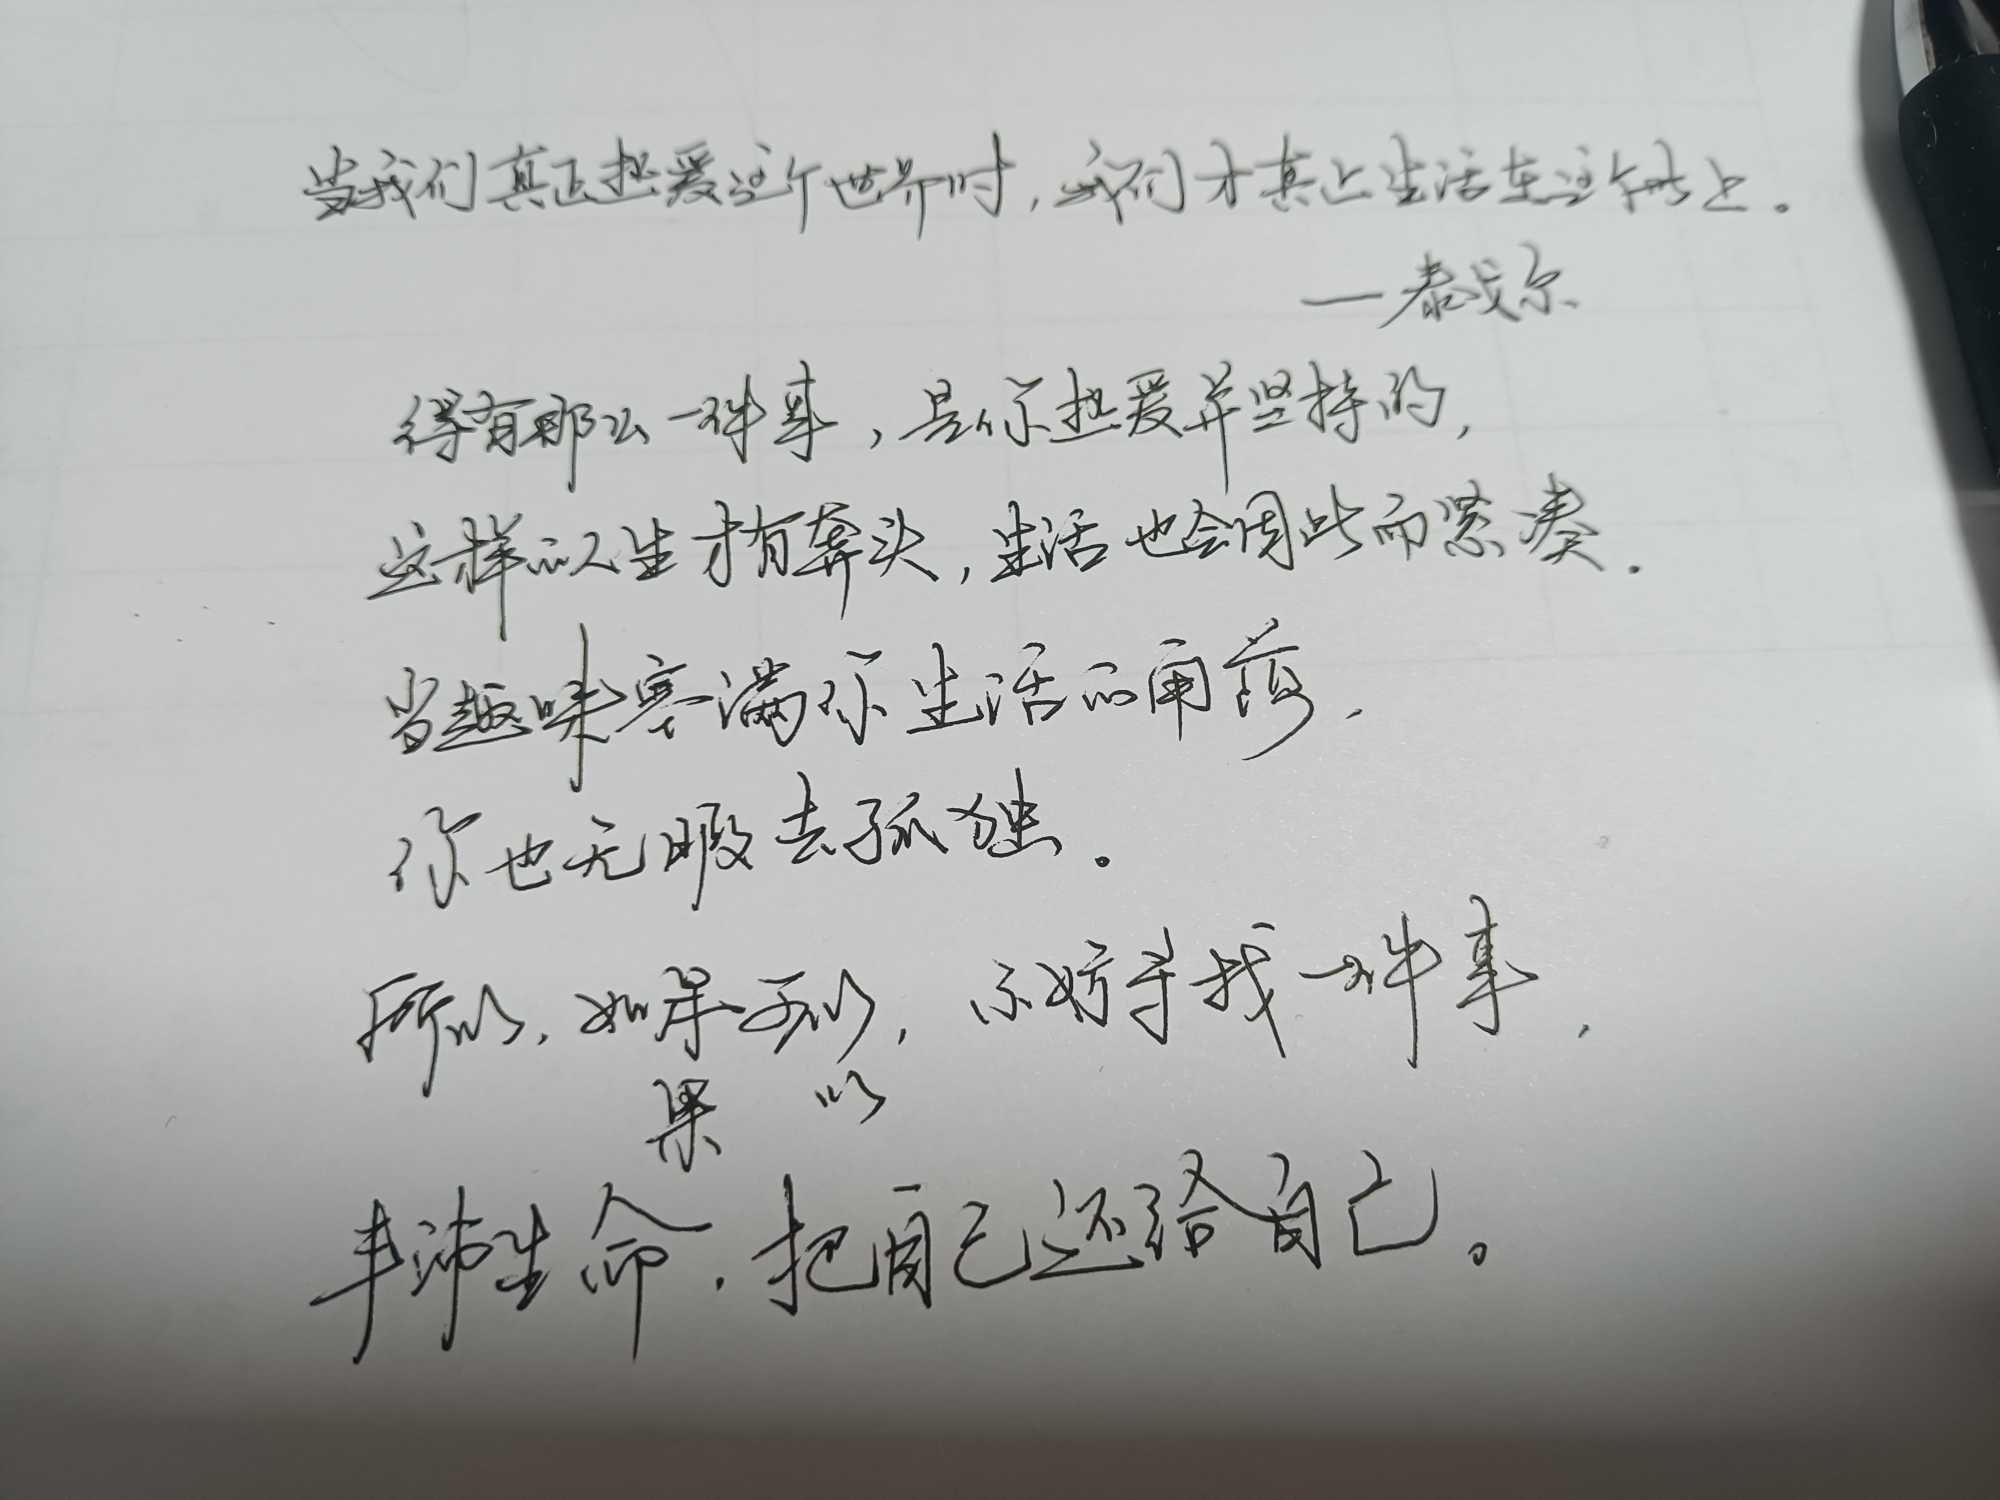 当我们真正热爱这个世界时,我们才真正生活在这个世上。
—泰戈尔
得有那么一件事,是你热爱并坚持的,
这样的人生才有奔头,生活也会因此而紧凑.
当趣味塞满你生活的角落,
你也无暇去孤独。
所以,如果可以,不妨寻找一件事,
果 以
丰沛生命,把自己还给自己。